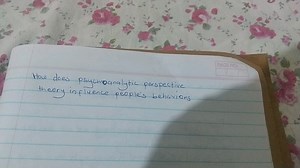 How does psychoanalytic perspective
theory influence people's behaviors